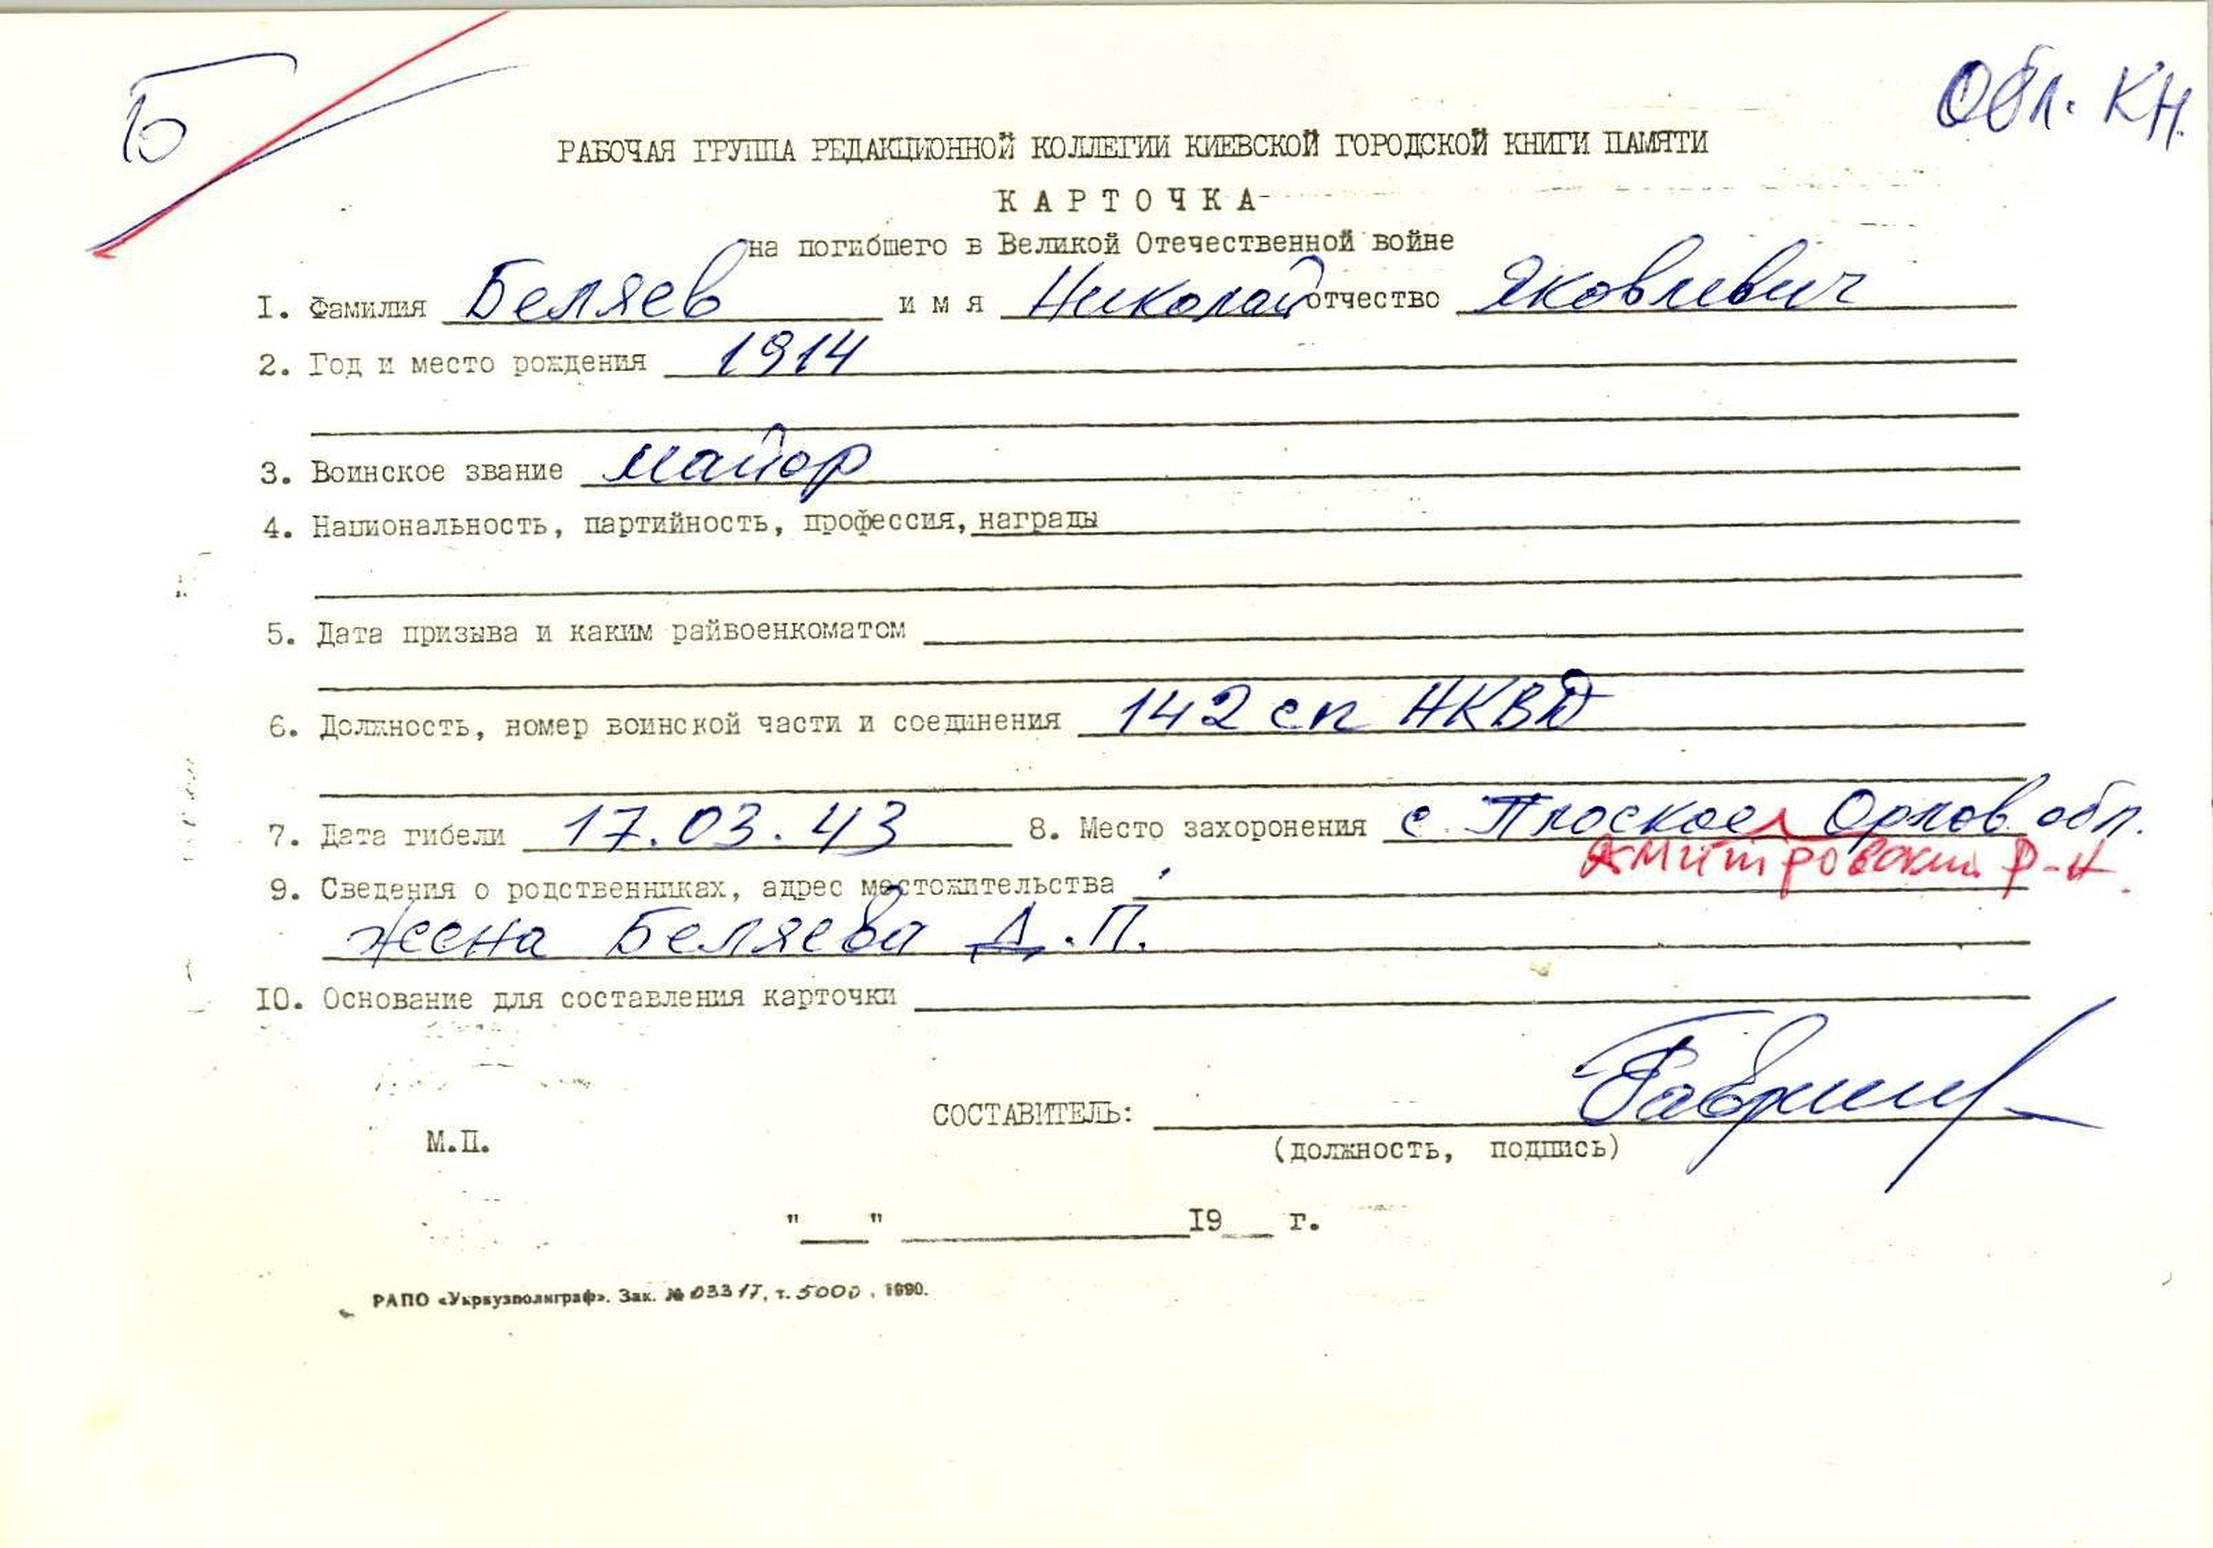 Б
Обл. КН.
РАБОЧАЯ ГРУППА РЕДАКЦИОННОЙ КОЛЛЕГИИ КИЕВСКОЙ ГОРОДСКОЙ КНИГИ ПАМЯТИ
КАРТОЧКА
на погибшего в Великой Отечественной войне
I. Фамилия Беляев имя Николай отчество Яковлевич
2. Год и место рождения 1914
3. Воинское звание майор
4. Национальность, партийность, профессия, награды
5. Дата призыва и каким райвоенкоматом
6. Должность, номер воинской части и соединения 142 сп НКВД
7. Дата гибели 17.03.43 8. Место захоронения с. Плоское Орлов. обл.
Дмитровский р-н.
9. Сведения о родственниках, адрес местожительства
жена Беляева Д.П.
IO. Основание для составления карточки
СОСТАВИТЕЛЬ:
М.П.
(должность, подпись)
"___" ___ I9__ г.
РАПО «Укрвузполиграф». Зак. № 03317, т. 5000, 1990.